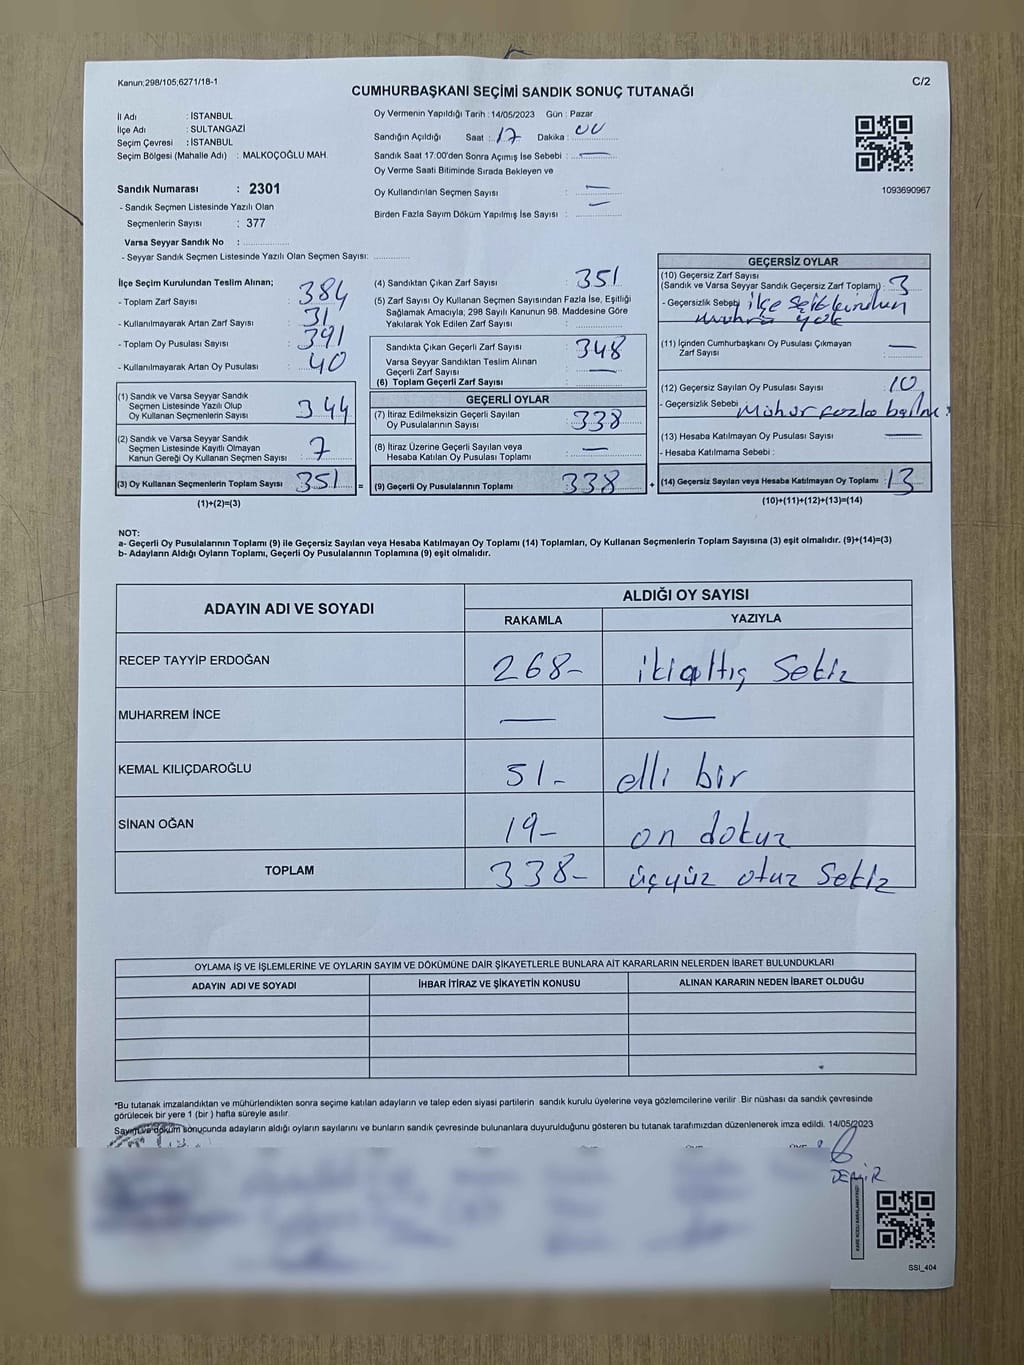 Kanun;298/105;6271/18-1
C/2
CUMHURBAŞKANI SEÇİMİ SANDIK SONUÇ TUTANAĞI
İl Adı : İSTANBUL
İlçe Adı : SULTANGAZİ
Seçim Çevresi : İSTANBUL
Seçim Bölgesi (Mahalle Adı) : MALKOÇOĞLU MAH.
Sandık Numarası : 2301
- Sandık Seçmen Listesinde Yazılı Olan
Seçmenlerin Sayısı : 377
Varsa Seyyar Sandık No :
- Seyyar Sandık Seçmen Listesinde Yazılı Olan Seçmen Sayısı:
Oy Vermenin Yapıldığı Tarih : 14/05/2023 Gün : Pazar
Sandığın Açıldığı Saat : 17 Dakika : 00
Sandık Saat 17:00'den Sonra Açımış İse Sebebi : —
Oy Verme Saati Bitiminde Sırada Bekleyen ve
Oy Kullandırılan Seçmen Sayısı : —
Birden Fazla Sayım Döküm Yapılmış İse Sayısı : —
1093690967
İlçe Seçim Kurulundan Teslim Alınan;
- Toplam Zarf Sayısı : 384
- Kullanılmayarak Artan Zarf Sayısı : 31
- Toplam Oy Pusulası Sayısı : 391
- Kullanılmayarak Artan Oy Pusulası : 40
(1) Sandık ve Varsa Seyyar Sandık
Seçmen Listesinde Yazılı Olup
Oy Kullanan Seçmenlerin Sayısı : 344
(2) Sandık ve Varsa Seyyar Sandık
Seçmen Listesinde Kayıtlı Olmayan
Kanun Gereği Oy Kullanan Seçmen Sayısı : 7
(3) Oy Kullanan Seçmenlerin Toplam Sayısı : 351 =
(1)+(2)=(3)
(4) Sandıktan Çıkan Zarf Sayısı : 351
(5) Zarf Sayısı Oy Kullanan Seçmen Sayısından Fazla İse, Eşitliği
Sağlamak Amacıyla; 298 Sayılı Kanunun 98. Maddesine Göre
Yakılarak Yok Edilen Zarf Sayısı :
Sandıkta Çıkan Geçerli Zarf Sayısı : 348
Varsa Seyyar Sandıktan Teslim Alınan
Geçerli Zarf Sayısı : —
(6) Toplam Geçerli Zarf Sayısı :
GEÇERLİ OYLAR
(7) İtiraz Edilmeksizin Geçerli Sayılan
Oy Pusulalarının Sayısı : 338
(8) İtiraz Üzerine Geçerli Sayılan veya
Hesaba Katılan Oy Pusulası Toplamı : —
(9) Geçerli Oy Pusulalarının Toplamı : 338 +
GEÇERSİZ OYLAR
(10) Geçersiz Zarf Sayısı
(Sandık ve Varsa Seyyar Sandık Geçersiz Zarf Toplamı) : 3
- Geçersizlik Sebebi : ilçe
mührü yok
(11) İçinden Cumhurbaşkanı Oy Pusulası Çıkmayan
Zarf Sayısı : —
(12) Geçersiz Sayılan Oy Pusulası Sayısı : 10
- Geçersizlik Sebebi : mühür fazla
(13) Hesaba Katılmayan Oy Pusulası Sayısı : —
- Hesaba Katılmama Sebebi :
(14) Geçersiz Sayılan veya Hesaba Katılmayan Oy Toplamı : 13
(10)+(11)+(12)+(13)=(14)
NOT:
a- Geçerli Oy Pusulalarının Toplamı (9) ile Geçersiz Sayılan veya Hesaba Katılmayan Oy Toplamı (14) Toplamları, Oy Kullanan Seçmenlerin Toplam Sayısına (3) eşit olmalıdır. (9)+(14)=(3)
b- Adayların Aldığı Oyların Toplamı, Geçerli Oy Pusulalarının Toplamına (9) eşit olmalıdır.
ADAYIN ADI VE SOYADI
ALDIĞI OY SAYISI
RAKAMLA YAZIYLA
RECEP TAYYİP ERDOĞAN 268- ikialtış Sekiz
MUHARREM İNCE — —
KEMAL KILIÇDAROĞLU 51- elli bir
SİNAN OĞAN 19- on dokuz
TOPLAM 338- üçyüz otuz Sekiz
OYLAMA İŞ VE İŞLEMLERİNE VE OYLARIN SAYIM VE DÖKÜMÜNE DAİR ŞİKAYETLERLE BUNLARA AİT KARARLARIN NELERDEN İBARET BULUNDUKLARI
ADAYIN ADI VE SOYADI İHBAR İTİRAZ VE ŞİKAYETİN KONUSU ALINAN KARARIN NEDEN İBARET OLDUĞU
*Bu tutanak imzalandıktan ve mühürlendikten sonra seçime katılan adayların ve talep eden siyasi partilerin sandık kurulu üyelerine veya gözlemcilerine verilir. Bir nüshası da sandık çevresinde
görülecek bir yere 1 (bir) hafta süreyle asılır.
Sayım ve döküm sonuçunda adayların aldığı oyların sayılarını ve bunların sandık çevresinde bulunanlara duyurulduğunu gösteren bu tutanak tarafımızdan düzenlenerek imza edildi. 14/05/2023
DEMİR
SSI_404